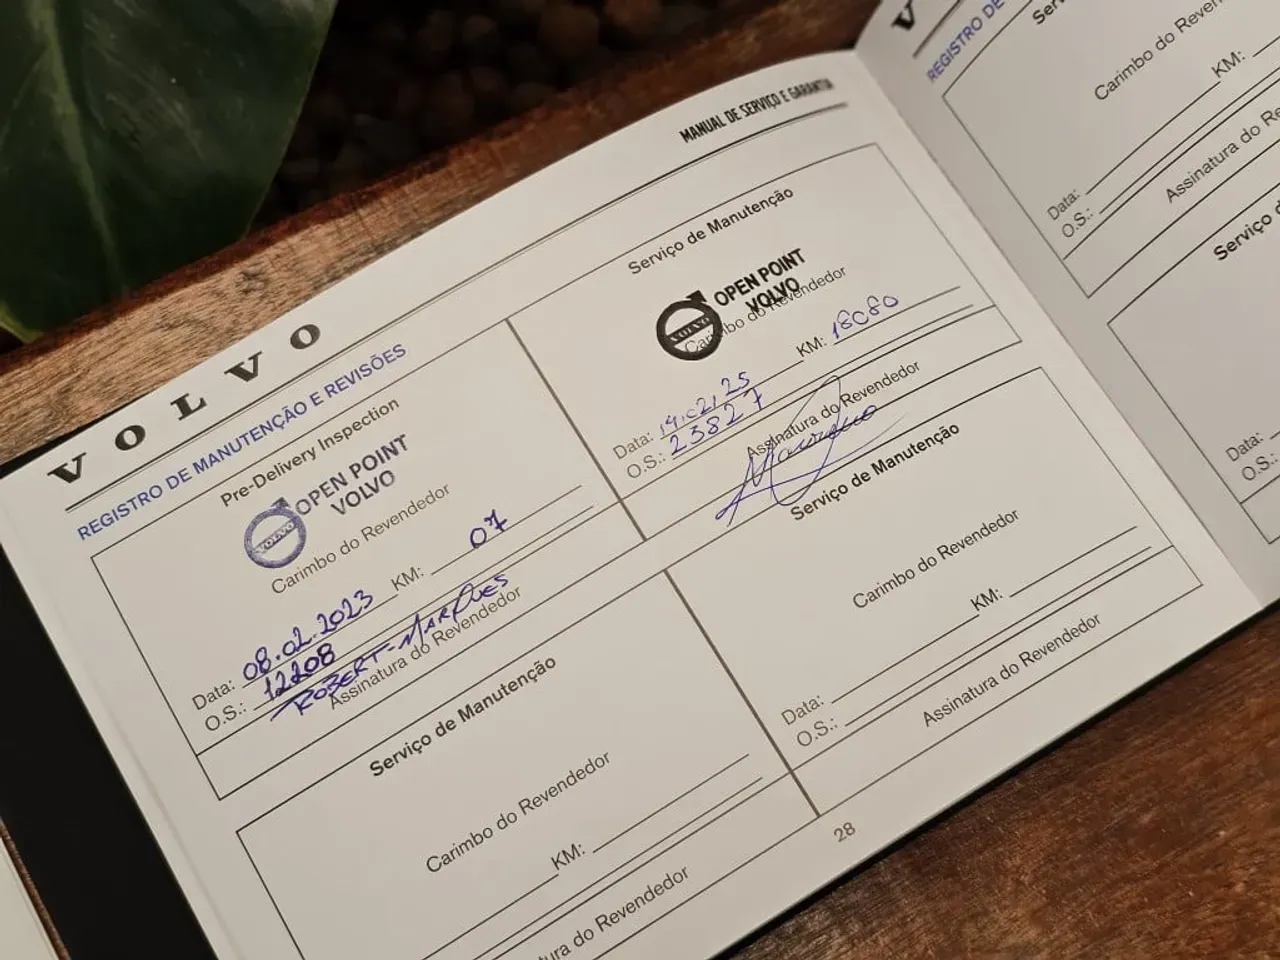 MANUAL DE SERVIÇO E GARANTIA
VOLVO
REGISTRO DE MANUTENÇÃO E REVISÕES
Pre-Delivery Inspection
OPEN POINT
VOLVO
VOLVO
Carimbo do Revendedor
Data: 08.02.2023 KM: 07
O.S.: 12208
ROBERT-MARQUES
Assinatura do Revendedor
Serviço de Manutenção
OPEN POINT
VOLVO
VOLVO
Carimbo do Revendedor
Data: 14.02.25 KM: 18080
O.S.: 23827
Assinatura do Revendedor
Serviço de Manutenção
Carimbo do Revendedor
KM:
tura do Revendedor
Serviço de Manutenção
Carimbo do Revendedor
Data: KM:
O.S.:
Assinatura do Revendedor
28
V
REGISTRO DE
Ser
Carimbo do Reven
Data: KM:
O.S.:
Assinatura do Re
Serviço d
Data:
O.S.: